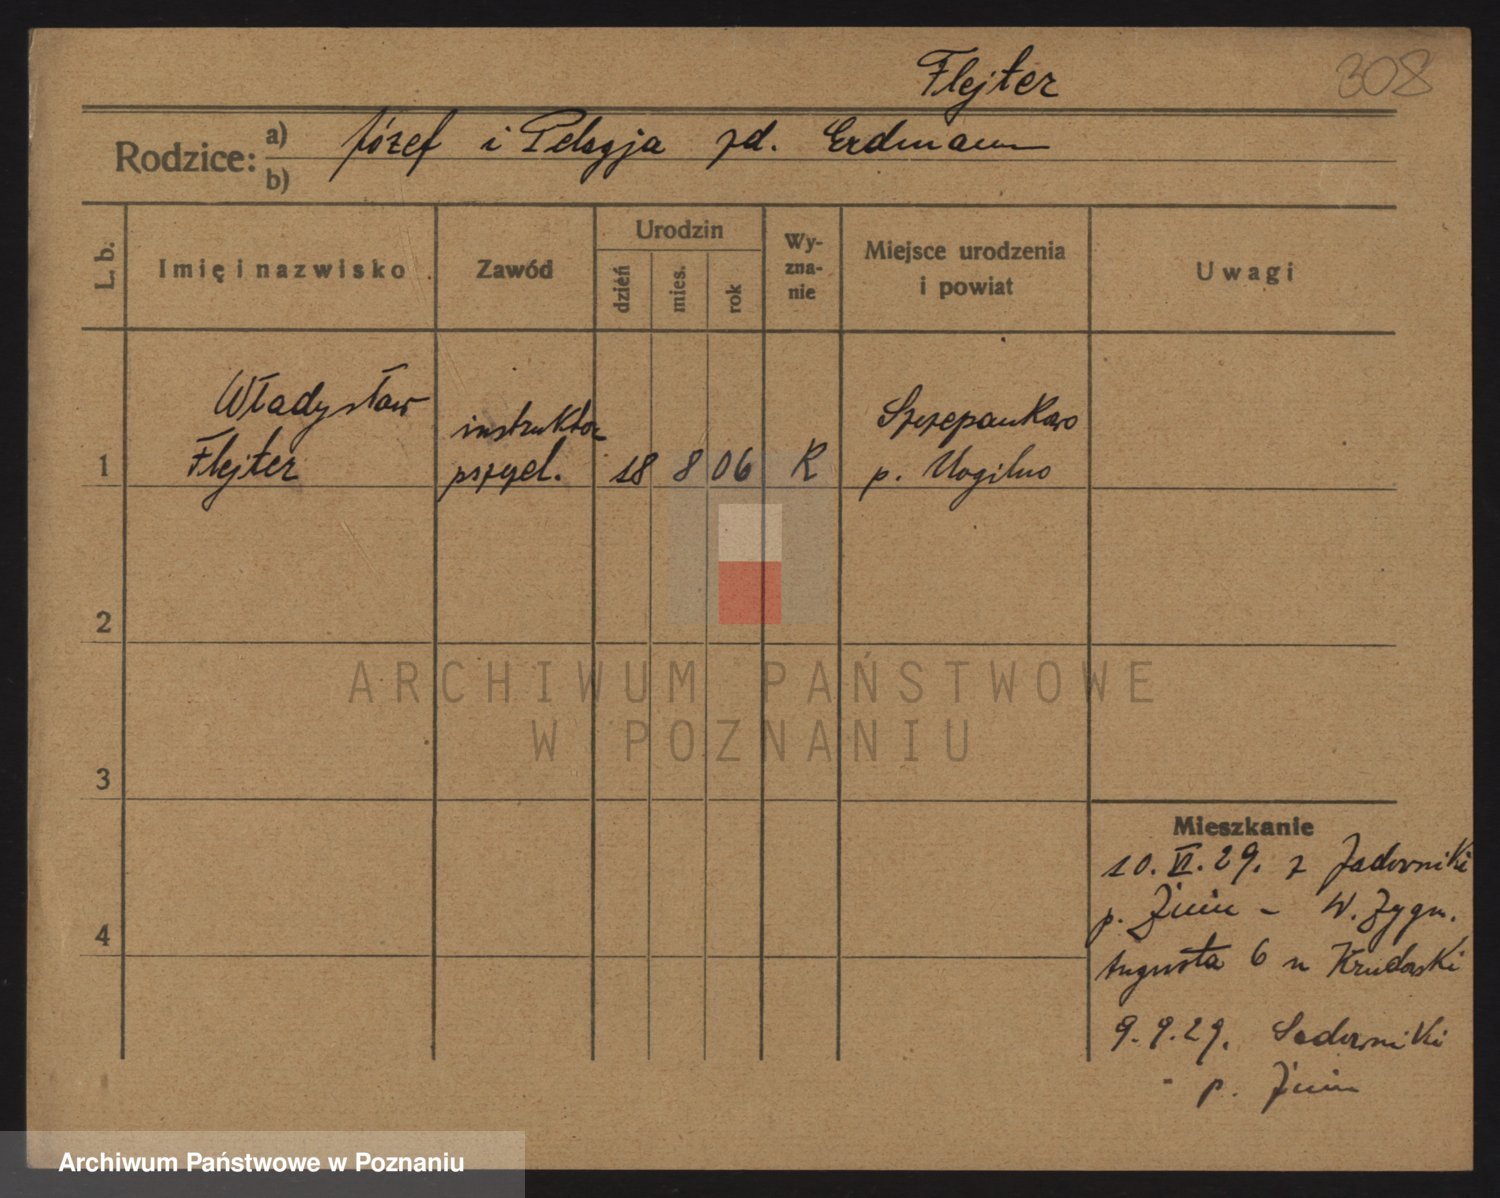 Flejter
308
Rodzice: a) Józef i Pelagja zd. Erdmann
b)
L. b.
Imię i nazwisko
Zawód
Urodzin
dzień
mies.
rok
Wy-
zna-
nie
Miejsce urodzenia
i powiat
Uwagi
1
Władysław
Flejter
instruktor
pszczel.
18 8 06
R
Szczepankowo
p. Mogilno
2
3
4
ARCHIWUM PAŃSTWOWE
W POZNANIU
Mieszkanie
10. VI. 29. z Jadowniki
p. Żnin - W. Zygm.
Augusta 6 u
9. 9. 29. Jadowniki
p. Żnin
Archiwum Państwowe w Poznaniu